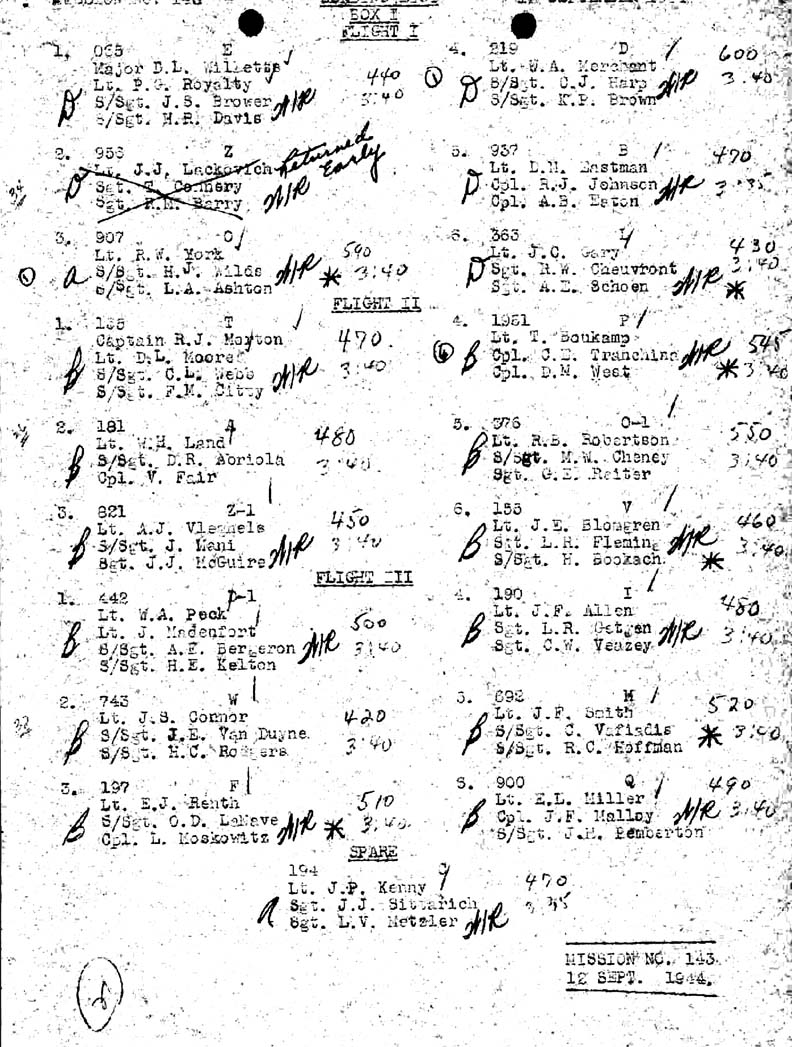 BOX I
FLIGHT I
1. 065 E
Major D.L. Willetts
Lt. P.G. Royalty 440
D S/Sgt. J.S. Brower N/R 3:40
S/Sgt. H.R. Davis
2. 956 Z
Lt. J.J. Lackovich Returned Early
D Sgt. T. Connery
Sgt. R.M. Barry N/R
3. 907 O
Lt. R.W. York 590
A S/Sgt. H.J. Wilds N/R * 3:40
S/Sgt. L.A. Ashton
4. 219 D 600
Lt. W.A. Merchant
D S/Sgt. C.J. Harp N/R 3:40
S/Sgt. K.P. Brown
5. 937 B 470
Lt. D.N. Eastman
D Cpl. R.J. Johnson N/R 3:35
Cpl. A.B. Eaton
6. 363 L
Lt. J.C. Gary 430
D Sgt. R.W. Cheuvront 3:40
Sgt. A.E. Schoen N/R *
FLIGHT II
1. T
Captain R.J. Moyton 470
Lt. D.L. Moore
B S/Sgt. C.L. Webb N/R 3:40
S/Sgt. F.M. Citty
2. 181 A
Lt. W.H. Land 480
B S/Sgt. D.R. Abriola 3:40
Cpl. V. Fair
3. 821 Z-1
Lt. A.J. Vleghels 450
B S/Sgt. J. Mani 3:40
Sgt. J.J. McGuire N/R
4. 1951 P
Lt. T. Boukamp 545
B Cpl. C.E. Tranchina N/R
Cpl. D.M. West * 3:40
5. 376 O-1
Lt. R.B. Robertson 550
B S/Sgt. M.W. Cheney 3:40
Sgt. G.E. Reiter
6. V
Lt. J.E. Blomgren 460
B Sgt. L.R. Fleming N/R 3:40
S/Sgt. H. Bookach *
FLIGHT III
1. 442 P-1
Lt. W.A. Peck 500
Lt. J. Madenfort
B S/Sgt. A.E. Bergeron N/R 3:40
S/Sgt. H.E. Kelton
2. 743 W
Lt. J.S. Connor 420
B S/Sgt. J.E. Van Duyne 3:40
S/Sgt. H.C. Rodgers
3. 197 F
Lt. E.J. Renth 510
B S/Sgt. O.D. LaNave * 3:40
Cpl. L. Moskowitz N/R
4. 190 I
Lt. J.F. Allen 480
B Sgt. L.R. Oetgen N/R 3:40
Sgt. C.W. Veazey
5. 692 M
Lt. J.F. Smith 520
B S/Sgt. C. Vafiadis * 3:40
S/Sgt. R.C. Hoffman
6. 900 Q 490
Lt. E.L. Miller
B Cpl. J.F. Malloy N/R 3:40
S/Sgt. J.H. Pemberton
SPARE
194
Lt. J.P. Kenny 470
A Sgt. J.J. Sittarich 3:35
Sgt. L.V. Metzler N/R
MISSION NO. 143
12 SEPT. 1944.